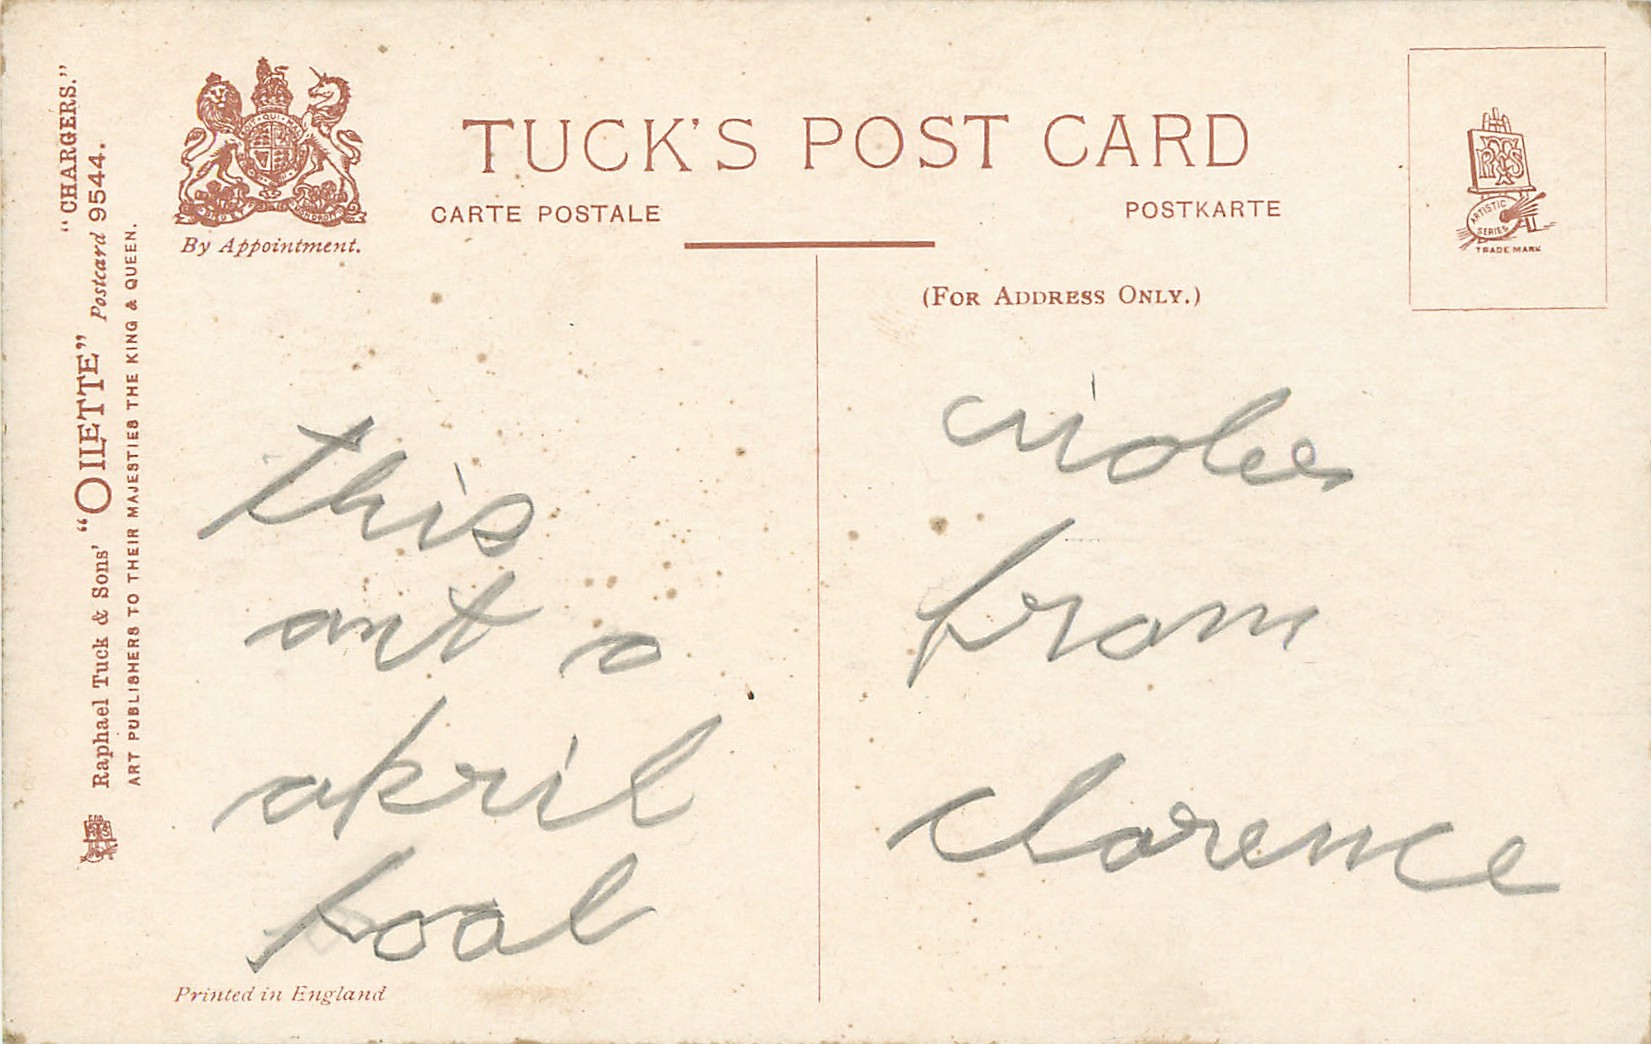 "CHARGERS."
Raphael Tuck & Sons' "OILETTE" Postcard 9544.
ART PUBLISHERS TO THEIR MAJESTIES THE KING & QUEEN.
By Appointment.
TUCK'S POST CARD
CARTE POSTALE
POSTKARTE
(FOR ADDRESS ONLY.)
ARTISTIC
SERIES
TRADE MARK
this
ant a
april
foal
from
clarence
Printed in England